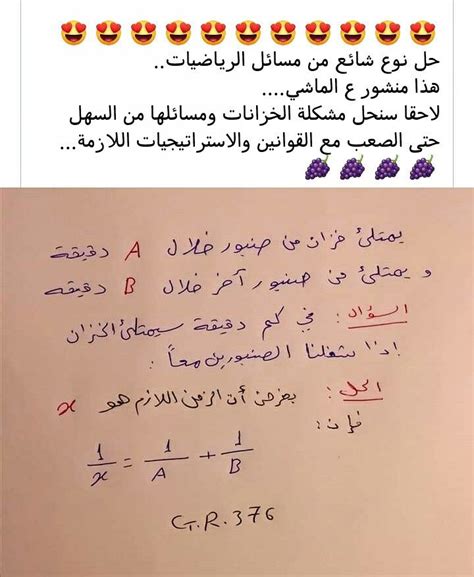 😍 😍 😍 😍 😍 😍 😍 😍 😍 😍 😍
حل نوع شائع من مسائل الرياضيات..
هذا منشور ع الماشي....
لاحقا سنحل مشكلة الخزانات ومسائلها من السهل
حتى الصعب مع القوانين والاستراتيجيات اللازمة...
🍇 🍇 🍇 🍇
يمتلئ خزان من صنبور خلال A دقيقة
و يمتلئ من صنبور آخر خلال B دقيقه
السؤال : في كم دقيقة سيمتلئ الخزان
إذا شغلنا الصنبورين معاً :
الحل : بفرض أن الزمن اللازم هو x
فإن :
1/x = 1/A + 1/B
G.R.376